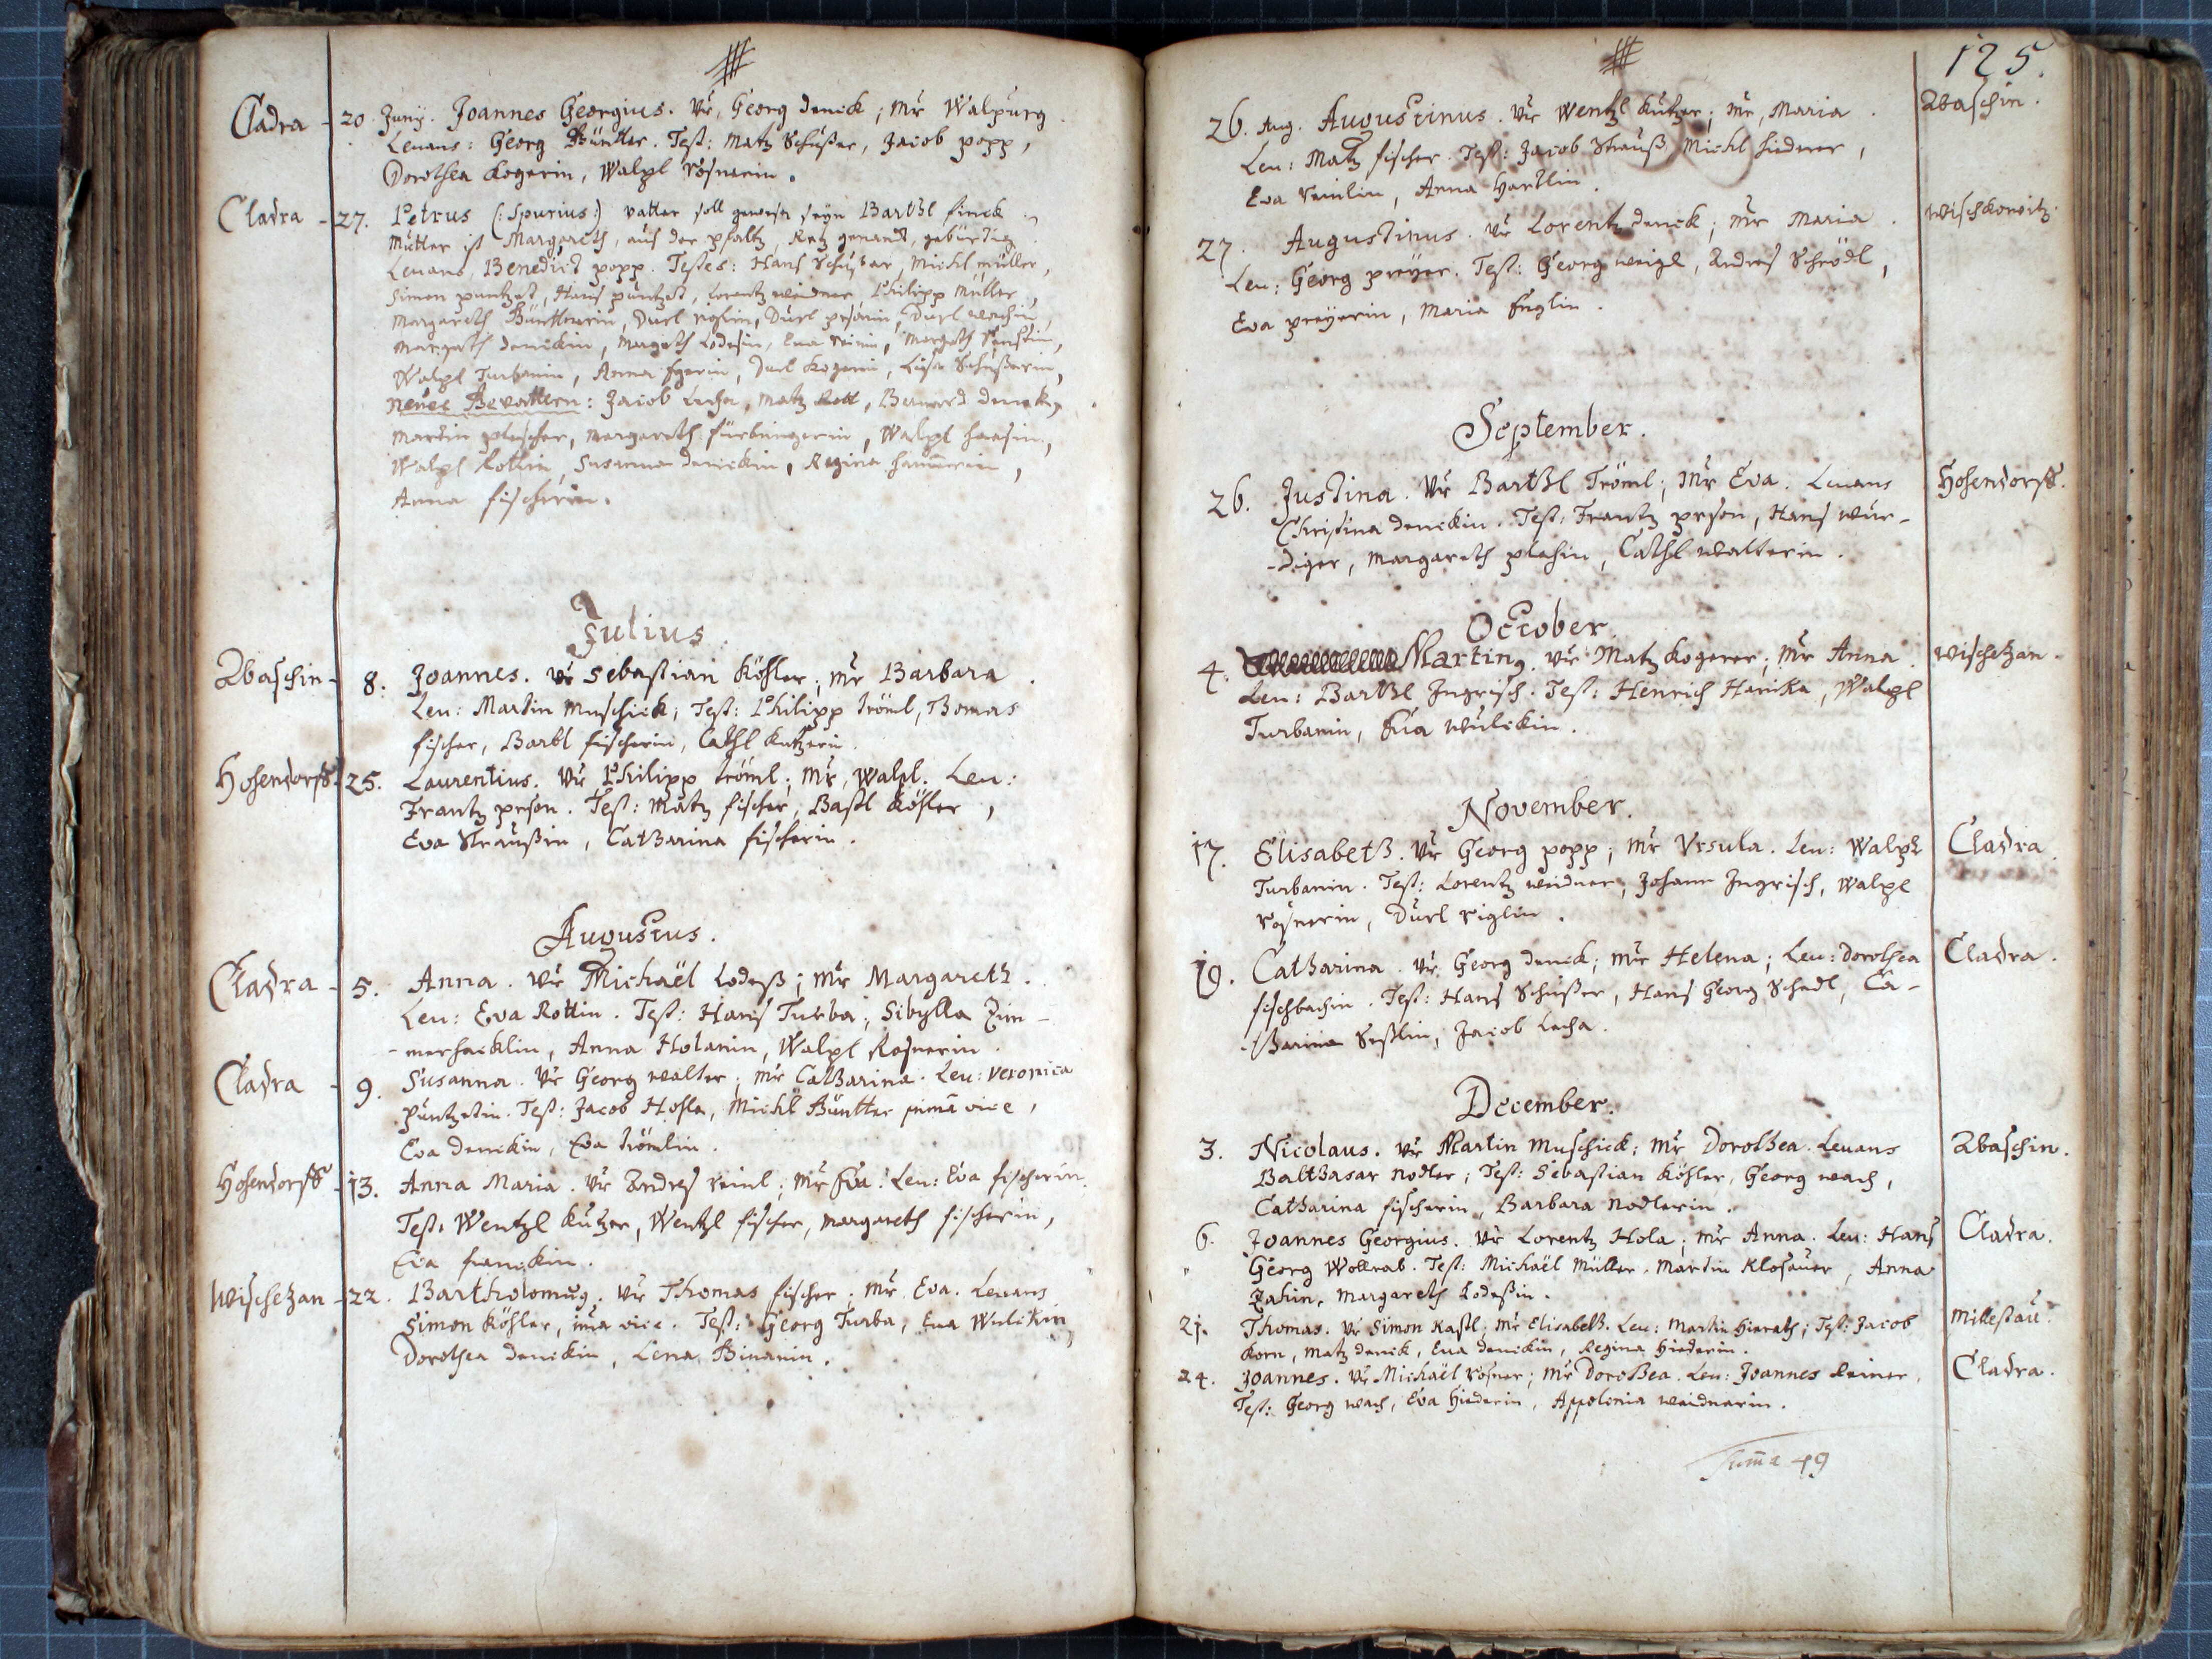 Cladra - 20. Junij. Joannes Georgius. Vr, Georg denck; Mr Walpurg
Leuans: Georg Büntter. Test: Matz Schußer, Jacob popp,
Dorothea Kogerin, Walpl rosnerin.
Cladra - 27. Petrus (: Spurius:) vatter soll gewesen seyn Barthl finck
Mutter ist Margareth, aus der pfaltz, genandt, gebürtig
Leuans, Benedict popp. Testes: Hans Schußer, Michl müller,
Simon puntzet, Hans puntzet, Lorentz weidner, Philipp Müller,
Margareth Büntterin, Durl riglin, Durl Durl wachin,
Margareth denickin, Margeth Lodesin, Eva Margeth
Walpl Turbanin, Durl Kogerin, Schußerin,
neüe Gevattern: Jacob Lecha, Matz Rott, Bernard denck,
Martin plescher, Margareth fürbringerin, Walpl hasin,
Walpl Rottin, Susanna denickin, Regina
Anna fischerin.
Julius.
Zbaschin - 8. Joannes. Vr Sebastian Köhler; Mr Barbara.
Leu: Martin Muschick; Test: Philipp tröml, Thomas
fischer, Barbl fischerin, Cathl Kutzerin.
Hohendorff - 25. Laurentius. Vr Philipp tröml; Mr, Walpl. Leu:
Frantz person. Test: Matz fischer, Bastl Köhler,
Eva Straußin, Catharina fischerin.
Augustus.
Cladra - 5. Anna. Vr Michaël Lodeß; Mr Margareth.
Leu: Eva Rottin. Test: Hans Turba, Sibylla Zim-
-merhacklin, Anna Holanin, Walpl Rosnerin.
Cladra - 9. Susanna. Vr Georg walter; Mr Catharina. Leu: Veronica
puntzetin. Test: Jacob Hohla, Michl Büntter primâ vice,
Eva denickin, Eva trömlin.
Hohendorff - 13. Anna Maria. Vr Andres reinl; Mr Eva. Leu: Eva fischerin.
Test: Wentzl Kutzer, Wentzl fischer, Margareth fischerin,
Eva franckin.
Wischezan - 22. Bartholomug. Vr Thomas fischer. Mr Eva. Leuans
Simon Köhler, vice. Test: Georg Turba, Eva Wulikin,
Dorothea denickin, Lena Binanin.
125.
26. Aug. Augustinus. Vr Wentzl Kutzer; Mr, Maria. Zbaschin.
Leu: Matz fischer. Test: Jacob Strauß, Michl hiedner,
Eva reinlin, Anna Hartlin.
27. Augustinus. Vr Lorentz denck; Mr Maria. Wischkowitz.
Leu: Georg preÿer. Test: Georg weigl, Andres Schrödl,
Eva preÿerin, Maria Englin.
September.
26. Justina. Vr Barthl Tröml; Mr Eva. Leuans Hohendorff.
Christina denckin. Test: Frantz person, Hans wür-
-diger, Margareth plechin, Cathl walterin.
October.
4. Marting. Vr Matz Kogerer; Mr Anna. Wischezan.
Leu: Barthl Ingrisch. Test: Henrich Hanika, Walpl
Turbanin, Eva Wulickin.
November.
17. Elisabeth. Vr Georg popp; Mr Vrsula. Leu: Walpl Cladra.
Turbanin. Test: Lorentz weidner, Johann Ingrisch, Walpl
rosnerin, Durl riglin.
19. Catharina. Vr Georg denck; Mr Helena; Leu: Dorothea Cladra.
fischbachin. Test: Hans Schußer, Hans Georg Schedl, Ca-
-tharina Jacob Lecha.
December.
3. Nicolaus. Vr Martin Muschick; Mr Dorothea. Leuans Zbaschin.
Balthasar Nodler; Test: Sebastian Köhler, Georg wach,
Catharina fischerin, Barbara Nodlerin.
6. Joannes Georgius. Vr Lorentz Hola; Mr Anna. Leu: Hans Cladra.
Georg Wollrab. Test: Michaël Müller, Martin Klosauer, Anna
Zahin, Margareth Lodeßin.
21. Thomas. Vr Simon Kastl; Mr Elisabeth. Leu: Martin Hierath; Test: Jacob Millestau.
Korn, Matz denck, Eva denickin, Regina Hiederin.
24. Joannes. Vr Michaël rosner; Mr Dorothea. Leu: Joannes Cladra.
Test: Georg wach, Eva Hiederin, Appolonia weidnerin.
Suma 49